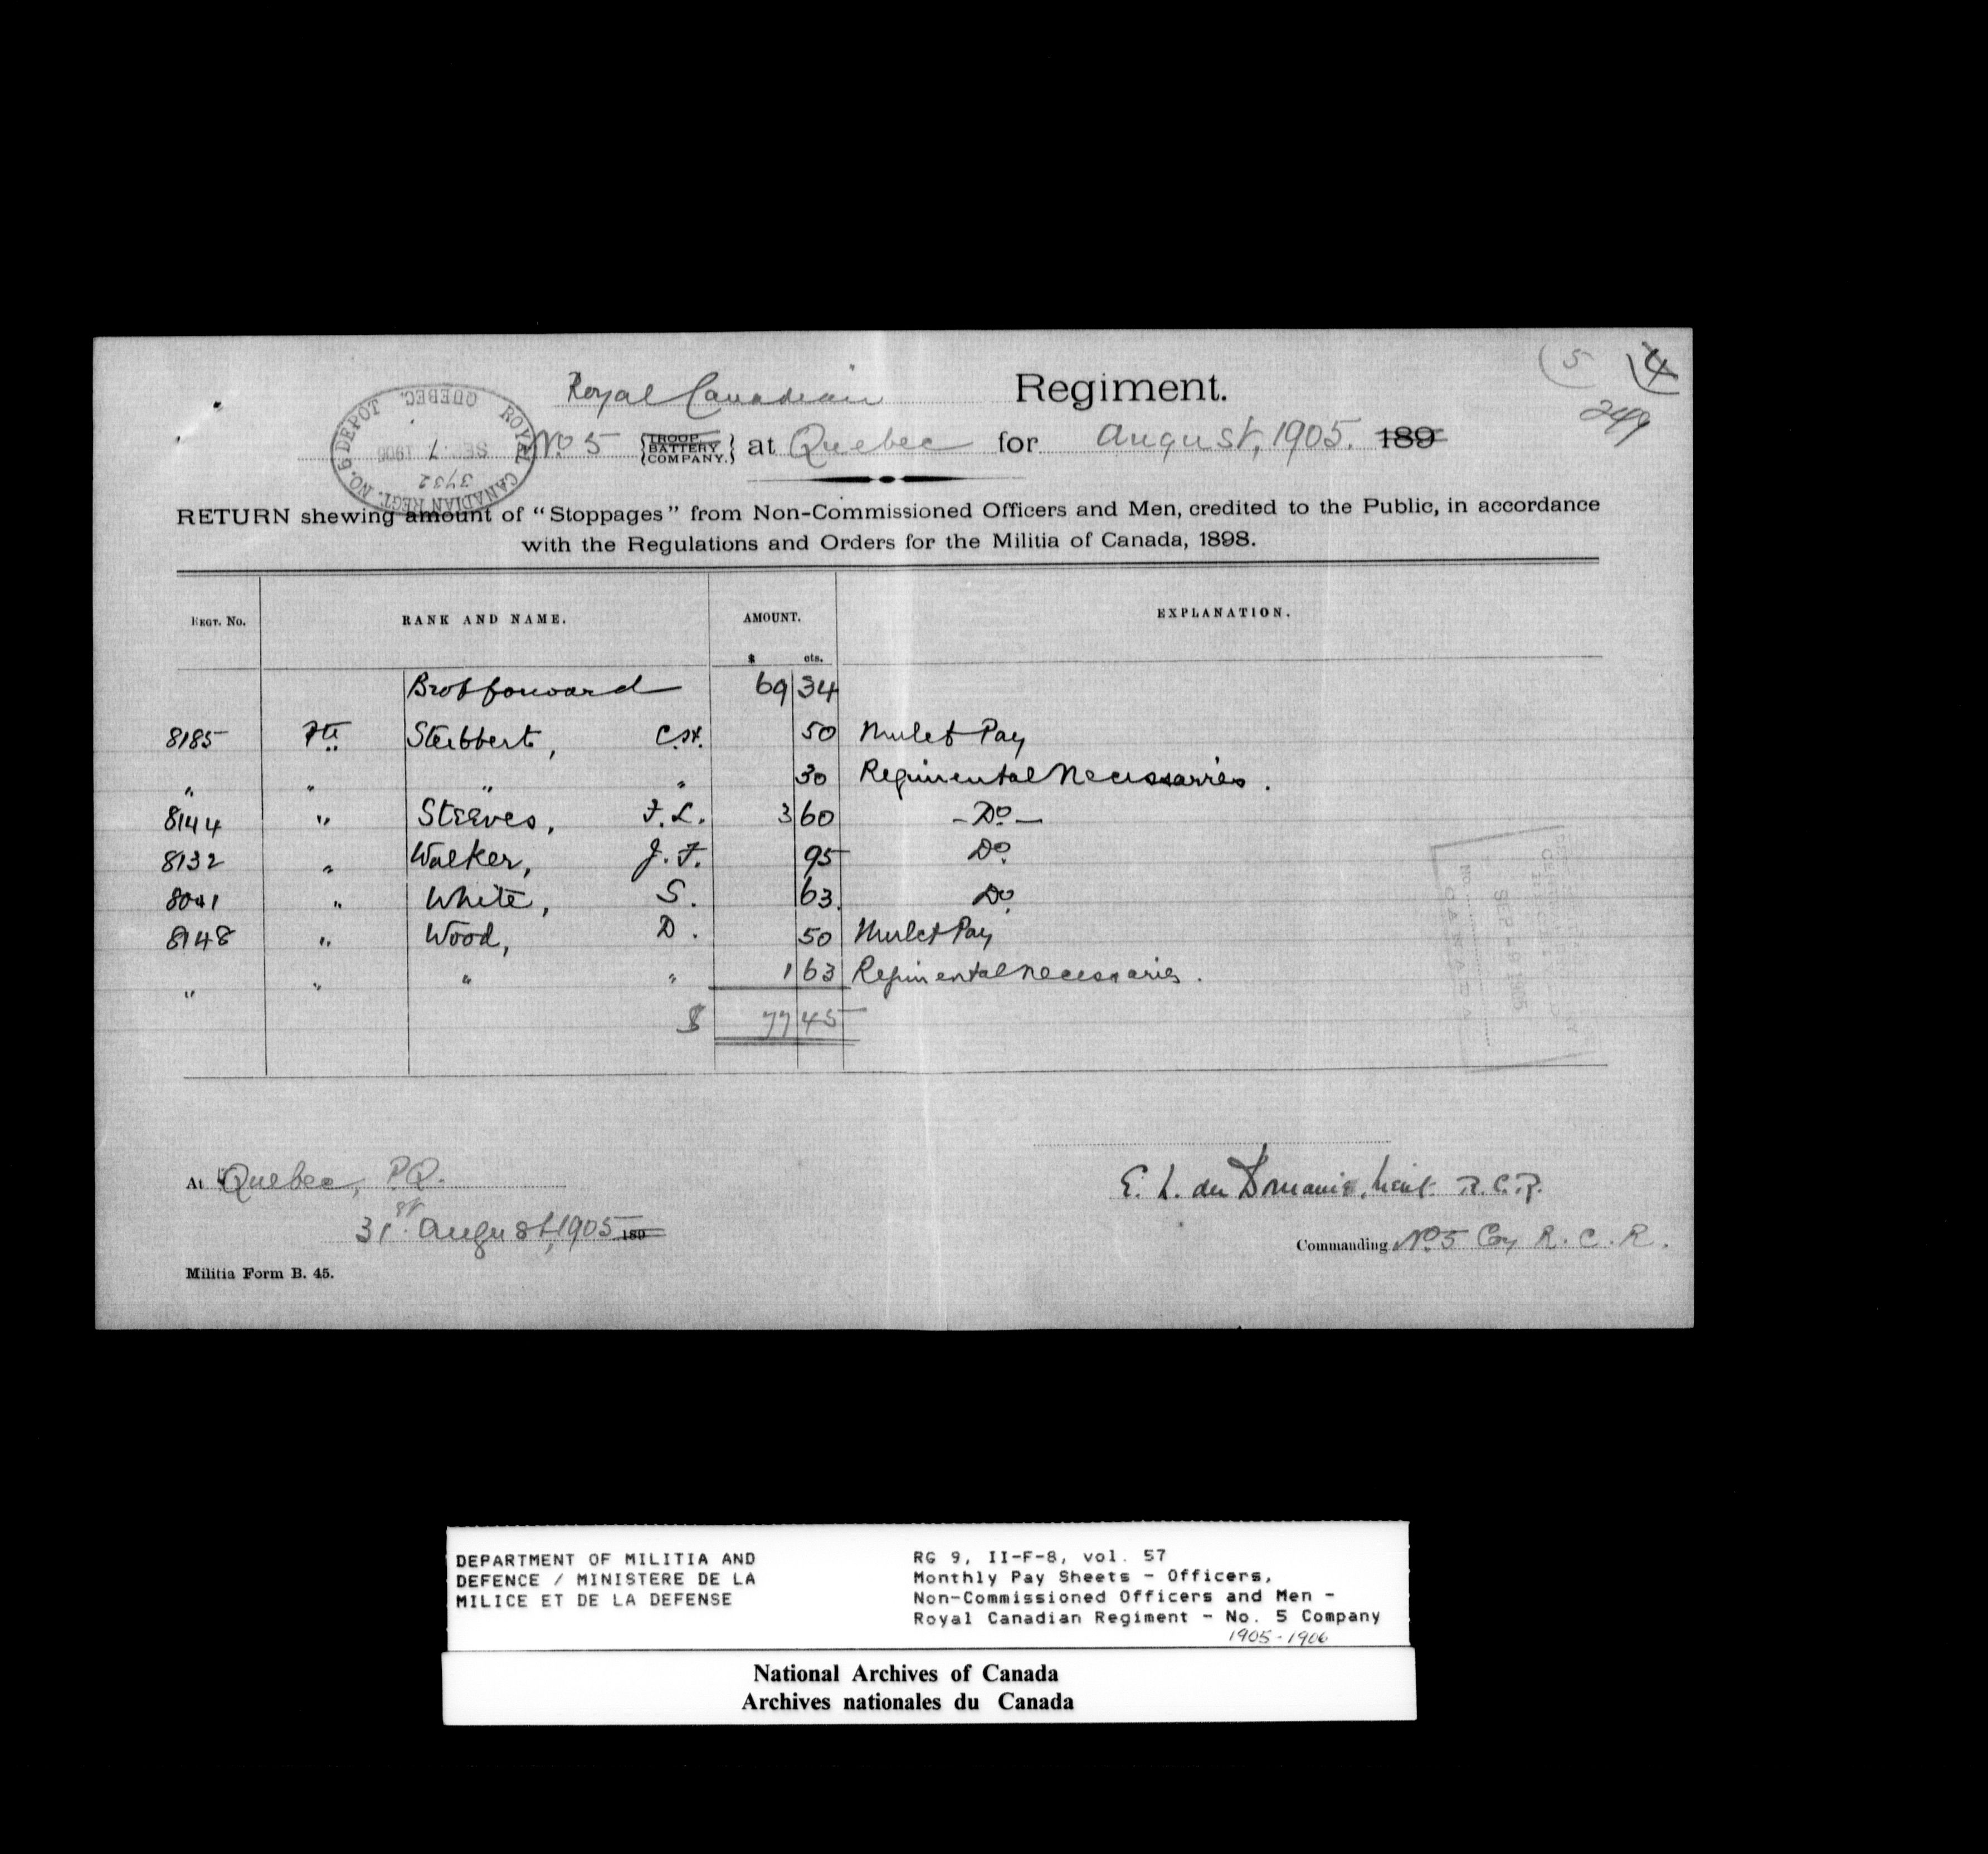 (5
(4
249
Royal Canadian Regiment.
No 5 {TROOP, BATTERY COMPANY.} at Quebec for August, 1905. 189
ROYAL CANADIAN REGT. NO. 6 DEPOT QUEBEC.
SEP. 7
3732
RETURN shewing amount of "Stoppages" from Non-Commissioned Officers and Men, credited to the Public, in accordance
with the Regulations and Orders for the Militia of Canada, 1898.
REGT. No. RANK AND NAME. AMOUNT. EXPLANATION.
$ cts.
Brot forward 69 34
8185 Pte Stebbert, C.H. 50 Mulct Pay
" " " " 30 Regimental Necessaries.
8144 " Steeves, F.L. 3 60 - Do -
8132 " Walker, J.F. 95 Do
8041 " White, S. 63 Do
8148 " Wood, D. 50 Mulct Pay
" " " " 1 63 Regimental necessaries.
$ 77 45
SEP - 9 1905
No.
At Quebec, P.Q.
31st August, 1905 189
E. L. du Lieut. R.C.R.
Commanding No 5 Coy R.C.R.
Militia Form B. 45.
DEPARTMENT OF MILITIA AND
DEFENCE / MINISTERE DE LA
MILICE ET DE LA DEFENSE
RG 9, II-F-8, vol. 57
Monthly Pay Sheets - Officers,
Non-Commissioned Officers and Men -
Royal Canadian Regiment - No. 5 Company
1905-1906
National Archives of Canada
Archives nationales du Canada